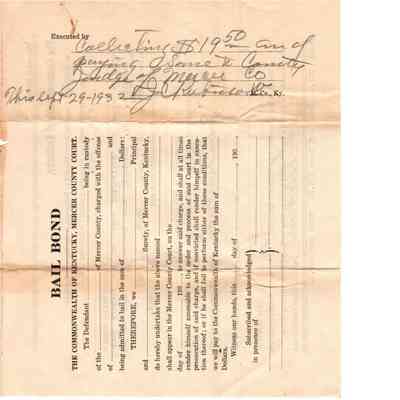 Executed by
Collecting $19 50 and
paying same to County
Judge of Mercer Co
This Sept 29-1932
BAIL BOND
THE COMMONWEALTH OF KENTUCKY, MERCER COUNTY COURT.
The Defendant being in custody
of the of Mercer County, charged with the offense
of and
being admitted to bail in the sum of Dollars:
THEREFORE, we Principal
and Surety, of Mercer County, Kentucky,
do hereby undertake that the above named
shall appear in the Mercer County Court, on the
day of 193 to answer said charge, and shall at all times
render himself amenable to the order and process of said Court in the
prosecution of said charge, and if convicted shall render himself in execu-
tion thereof; or if he shall fail to perform either of these conditions, that
we will pay to the Commonwealth of Kentucky the sum of
Dollars.
Witness our hands, this day of 193
Subscribed and acknowledged
in presence of